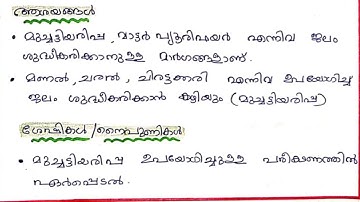 ആശയങ്ങൾ
• മുച്ചട്ടിയരിപ്പ, വാട്ടർ പ്യൂരിഫയർ എന്നിവ ജലം
ശുദ്ധീകരിക്കാനുള്ള മാർഗങ്ങളാണ്.
• മണൽ, ചരൽ, ചിരട്ടക്കരി എന്നിവ ഉപയോഗിച്ച്
ജലം ശുദ്ധീകരിക്കാൻ കഴിയും (മുച്ചട്ടിയരിപ്പ)
ശേഷികൾ / നൈപുണികൾ
• മുച്ചട്ടിയരിപ്പ ഉപയോഗിച്ചുള്ള പരീക്ഷണത്തിൽ
ഏർപ്പെടൽ.